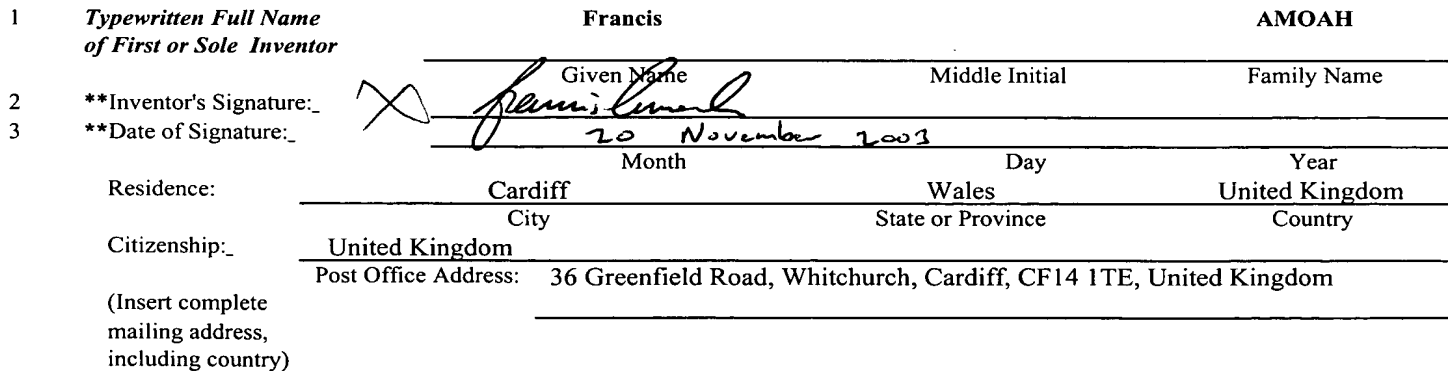 1 Typewritten Full Name Francis AMOAH
of First or Sole Inventor
Given Name Middle Initial Family Name
2 **Inventor's Signature:_ Francis Amoah
3 **Date of Signature:_ 20 November 2003
Month Day Year
Residence: Cardiff Wales United Kingdom
City State or Province Country
Citizenship:_ United Kingdom
Post Office Address: 36 Greenfield Road, Whitchurch, Cardiff, CF14 1TE, United Kingdom
(Insert complete
mailing address,
including country)